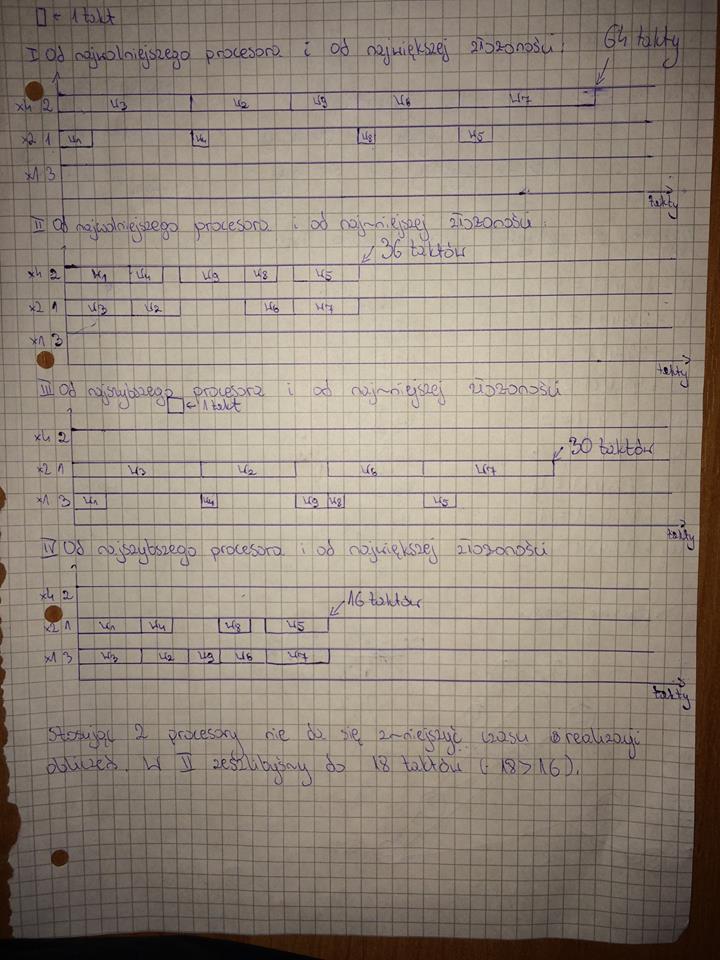 □ ← 1 takt
I Od najwolniejszego procesora i od największej złożoności:
64 takty
x4 2 U3 U2 U9 U6 U7
x2 1 U1 U4 U8 U5
x1 3
takty
II Od najwolniejszego procesora i od najmniejszej złożoności:
36 taktów
x4 2 U1 U4 U9 U8 U5
x2 1 U3 U2 U6 U7
x1 3
takty
III Od najszybszego procesora i od najmniejszej złożoności
□ ← 1 takt
x4 2
30 taktów
x2 1 U3 U2 U6 U7
x1 3 U1 U4 U9 U8 U5
takty
IV Od najszybszego procesora i od największej złożoności
x4 2
16 taktów
x2 1 U1 U4 U8 U5
x1 3 U3 U2 U9 U6 U7
takty
Stosując 2 procesory nie da się zmniejszyć czasu realizacji
obliczeń. W II zeszlibyśmy do 18 taktów (18>16).